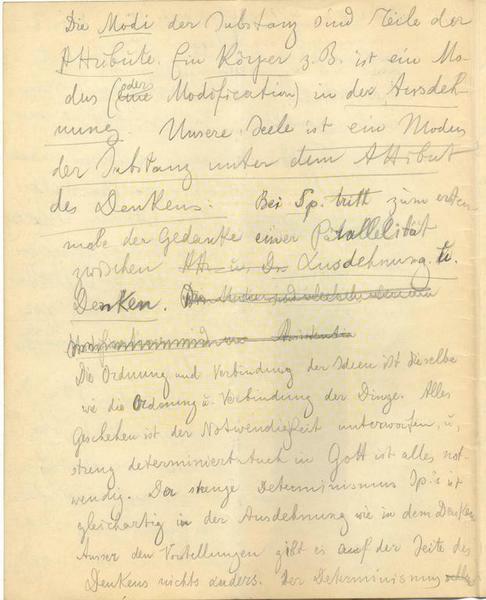 Die Modi der Substanz sind Teile der
Attribute. Ein Körper z.B. ist ein Mo-
dus (oder eine Modification) in der Ausdeh-
nung. Unsere Seele ist ein Modus
der Substanz unter dem Attribut
des Denkens. Bei Sp. tritt zum ersten
male der Gedanke einer Parallelität
zwischen Att. u. Ausdehnung u.
Denken.
Die Ordnung und Verbindung der Ideen ist dieselbe
wie die Ordnung u. Verbindung der Dinge. Alles
Geschehen ist der Notwendigkeit unterworfen, u.
streng determiniert. Auch in Gott ist alles not-
wendig. Der strenge Determinismus Sp.'s ist
gleichartig in der Ausdehnung wie in dem Denken
Ausser den Vorstellungen gibt es auf der Seite des
Denkens nichts anders. Der Determinismus